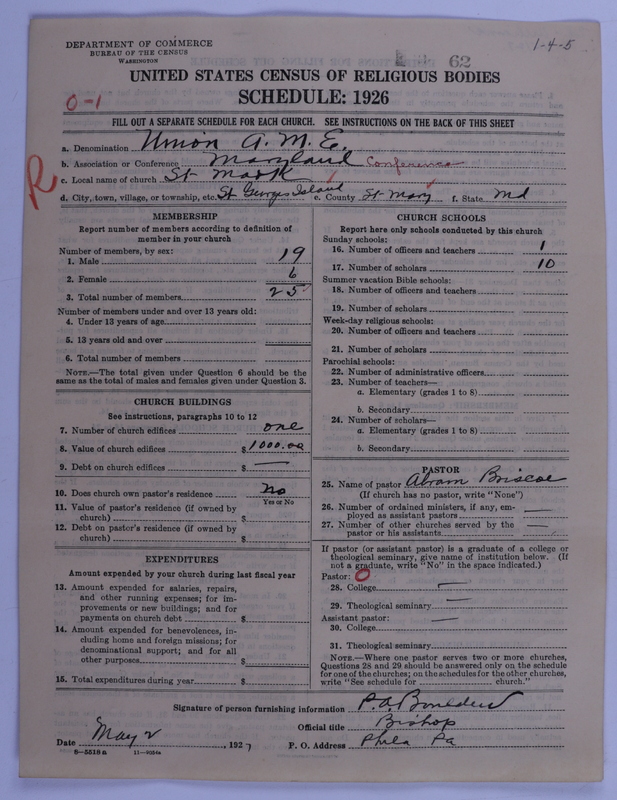 DEPARTMENT OF COMMERCE
BUREAU OF THE CENSUS
WASHINGTON
62
1-4-5
UNITED STATES CENSUS OF RELIGIOUS BODIES
SCHEDULE: 1926
0-1
FILL OUT A SEPARATE SCHEDULE FOR EACH CHURCH. SEE INSTRUCTIONS ON THE BACK OF THIS SHEET
a. Denomination Union A.M.E.
b. Association or Conference Maryland Conference
R
c. Local name of church St Mark
d. City, town, village, or township, etc. St Georges Island e. County St Mary f. State Md
MEMBERSHIP
Report number of members according to definition of member in your church
Number of members, by sex:
1. Male 19
2. Female 6
3. Total number of members 25
Number of members under and over 13 years old:
4. Under 13 years of age
5. 13 years old and over
6. Total number of members
NOTE.—The total given under Question 6 should be the same as the total of males and females given under Question 3.
CHURCH BUILDINGS
See instructions, paragraphs 10 to 12
7. Number of church edifices one
8. Value of church edifices $ 1000.00
9. Debt on church edifices $ —
10. Does church own pastor's residence No
Yes or No
11. Value of pastor's residence (if owned by church) $
12. Debt on pastor's residence (if owned by church) $
EXPENDITURES
Amount expended by your church during last fiscal year
13. Amount expended for salaries, repairs, and other running expenses; for improvements or new buildings; and for payments on church debt $
14. Amount expended for benevolences, including home and foreign missions; for denominational support; and for all other purposes $
15. Total expenditures during year $
CHURCH SCHOOLS
Report here only schools conducted by this church
Sunday schools:
16. Number of officers and teachers 1
17. Number of scholars 10
Summer vacation Bible schools:
18. Number of officers and teachers
19. Number of scholars
Week-day religious schools:
20. Number of officers and teachers
21. Number of scholars
Parochial schools:
22. Number of administrative officers
23. Number of teachers—
a. Elementary (grades 1 to 8)
b. Secondary
24. Number of scholars—
a. Elementary (grades 1 to 8)
b. Secondary
PASTOR
25. Name of pastor Abram Briscoe
(If church has no pastor, write "None")
26. Number of ordained ministers, if any, employed as assistant pastors —
27. Number of other churches served by the pastor or his assistants —
If pastor (or assistant pastor) is a graduate of a college or theological seminary, give name of institution below. (If not a graduate, write "No" in the space indicated.)
Pastor: 0
28. College —
29. Theological seminary —
Assistant pastor: —
30. College
31. Theological seminary
NOTE.—Where one pastor serves two or more churches, Questions 28 and 29 should be answered only on the schedule for one of the churches; on the schedules for the other churches, write "See schedule for church."
Signature of person furnishing information P.A. Boulden
Official title Bishop
Date May 2, 1927 P. O. Address Phila Pa
8—5518 a 11—9354a